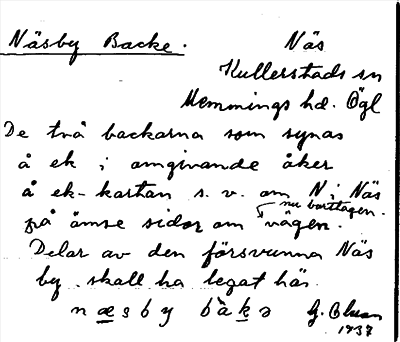 Näsby Backe. Näs
Kullerstads sn
Memmings hd. Ögl
De två backarna som synas
å ek i omgivande åker
å ek-kartan s. v. om N i Näs
nu borttagen.
på ömse sidor om vägen.
Delar av den försvunna Näs
by skall ha legat här.
næsby bàkə G.
1937